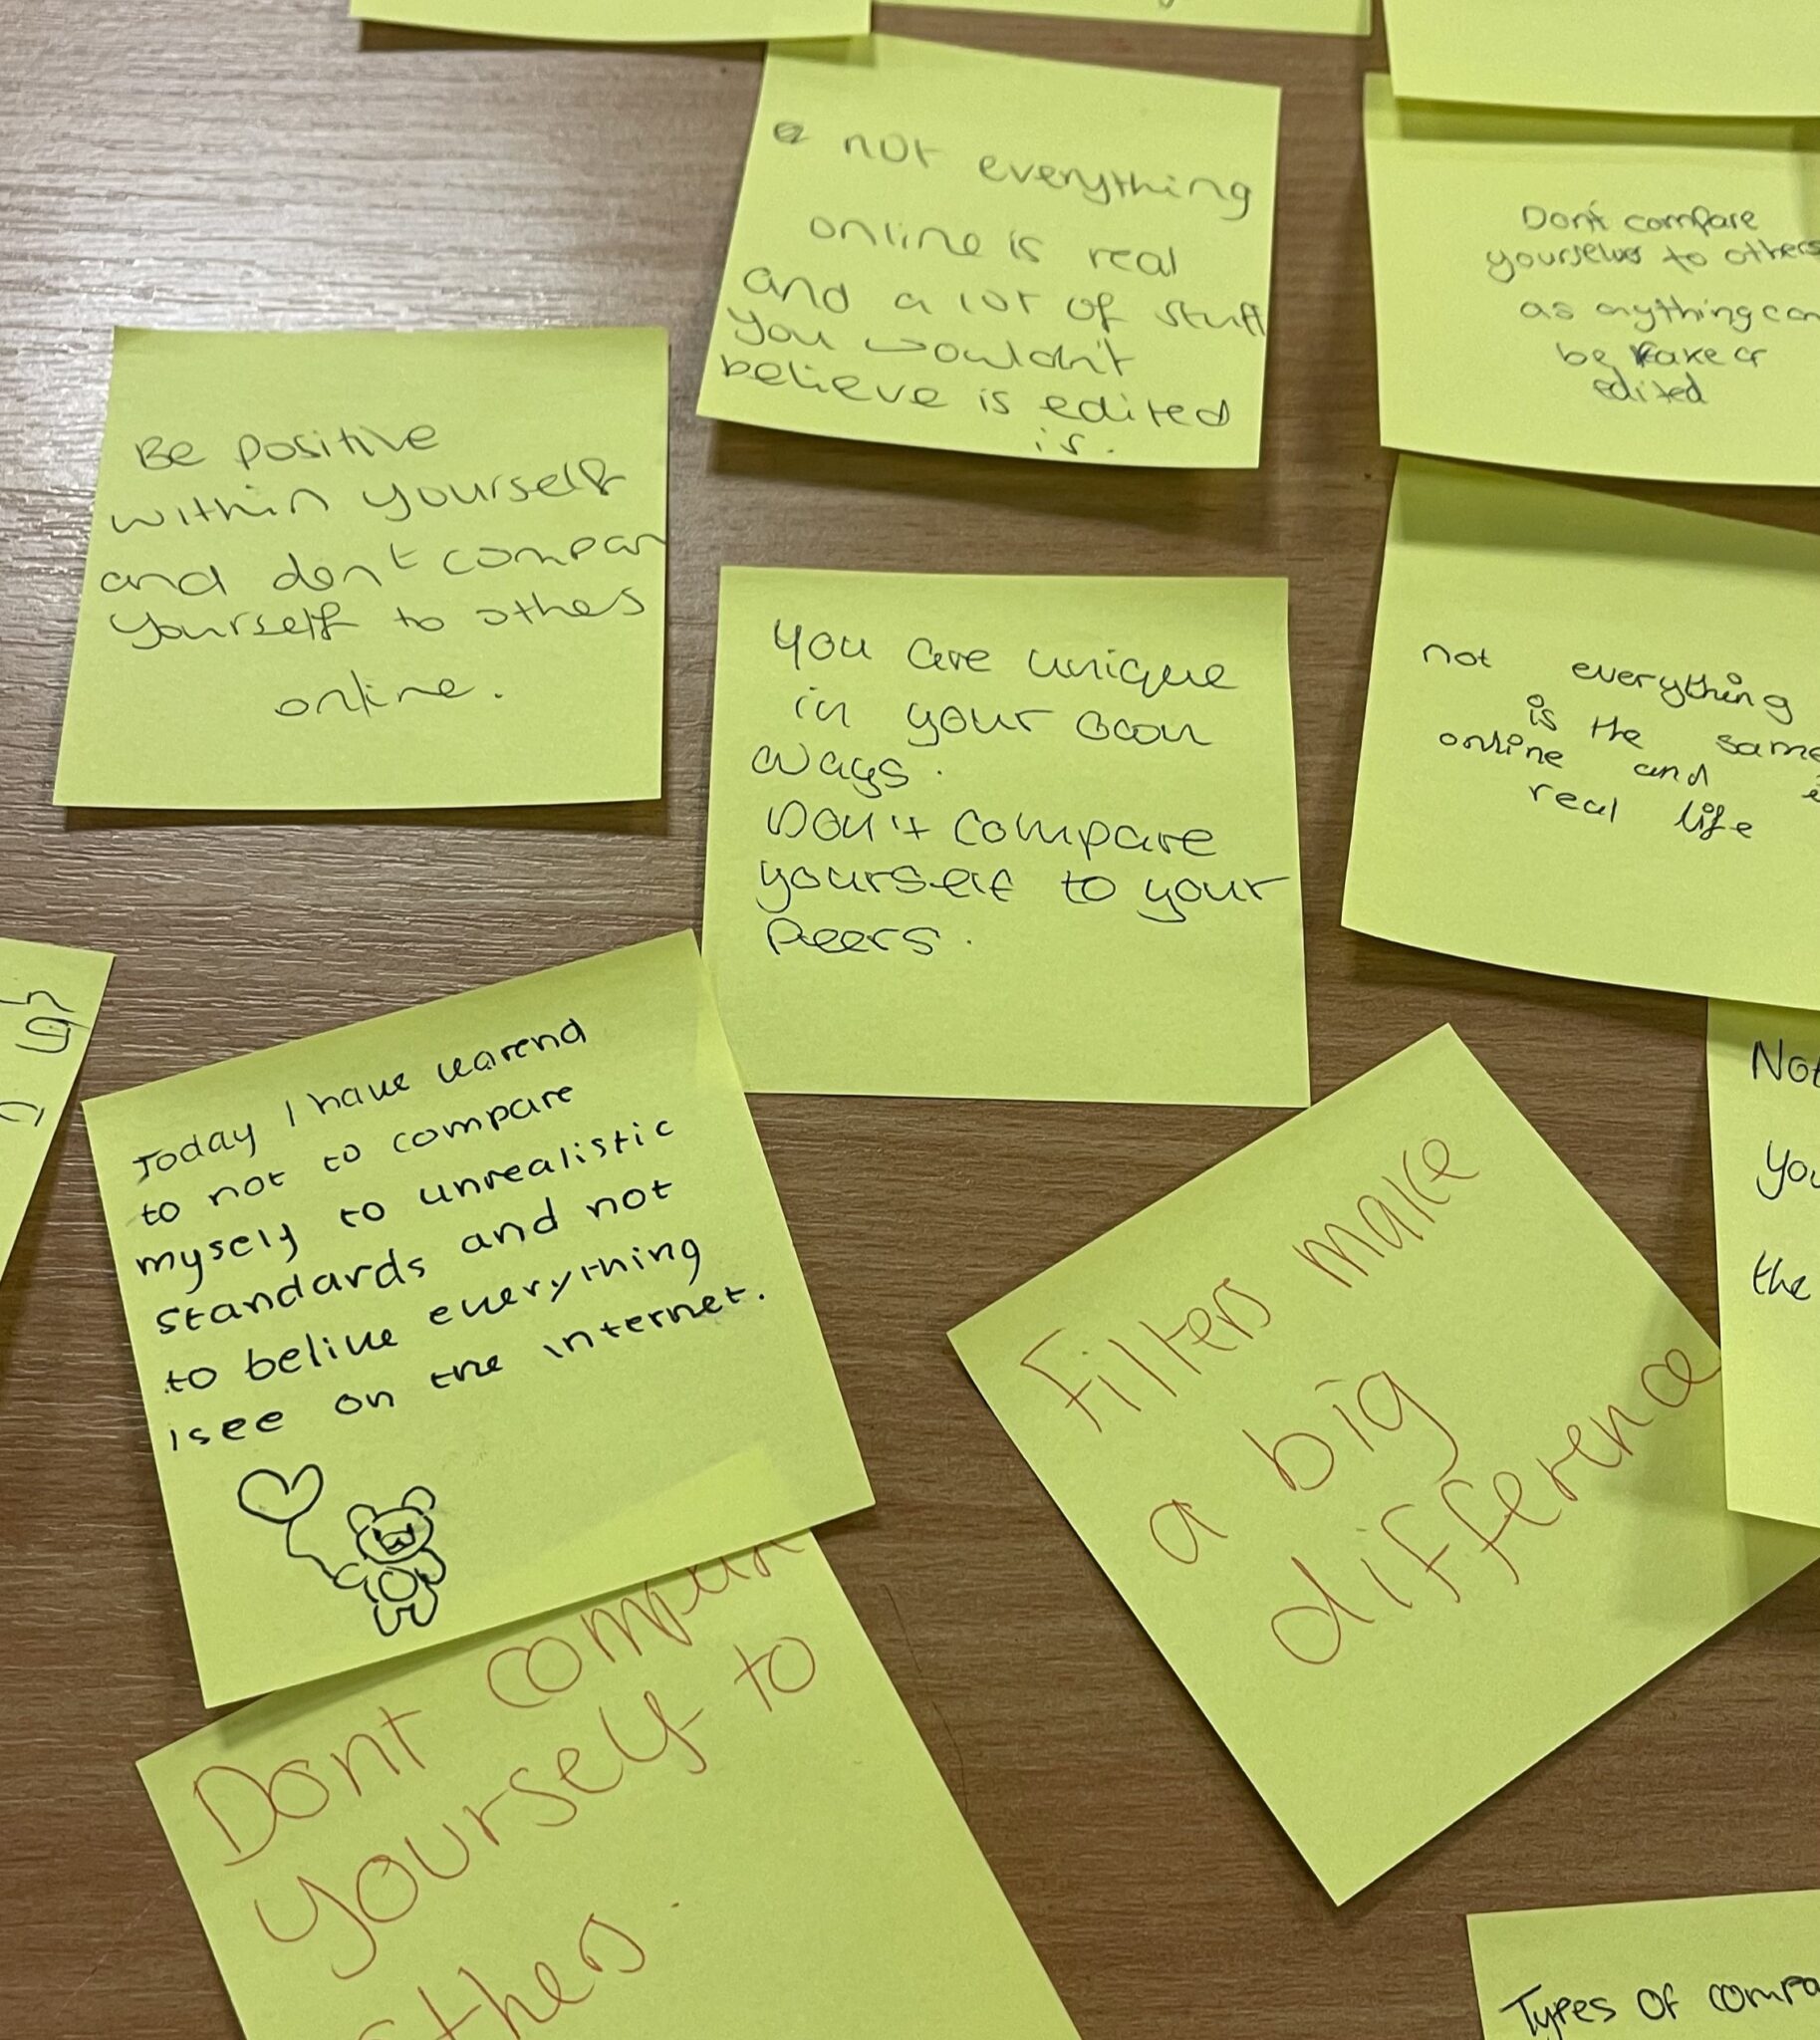 not everything
online is real
and a lot of stuff
you wouldn't
believe is edited
is.
Don't compare
yourselves to others
as anything can
be fake or
edited
Be positive
within yourself
and don't compar
yourself to othes
online.
You are unique
in your own
ways.
Don't compare
yourself to your
peers.
not everything
is the same
online and
real life
Today I have learend
to not to compare
mysely to unrealistic
standards and not
to belive everything
I see on the internet.
Not
you
the
Filters make
a big
difference
Dont compare
yourself to
others.
Types of compa